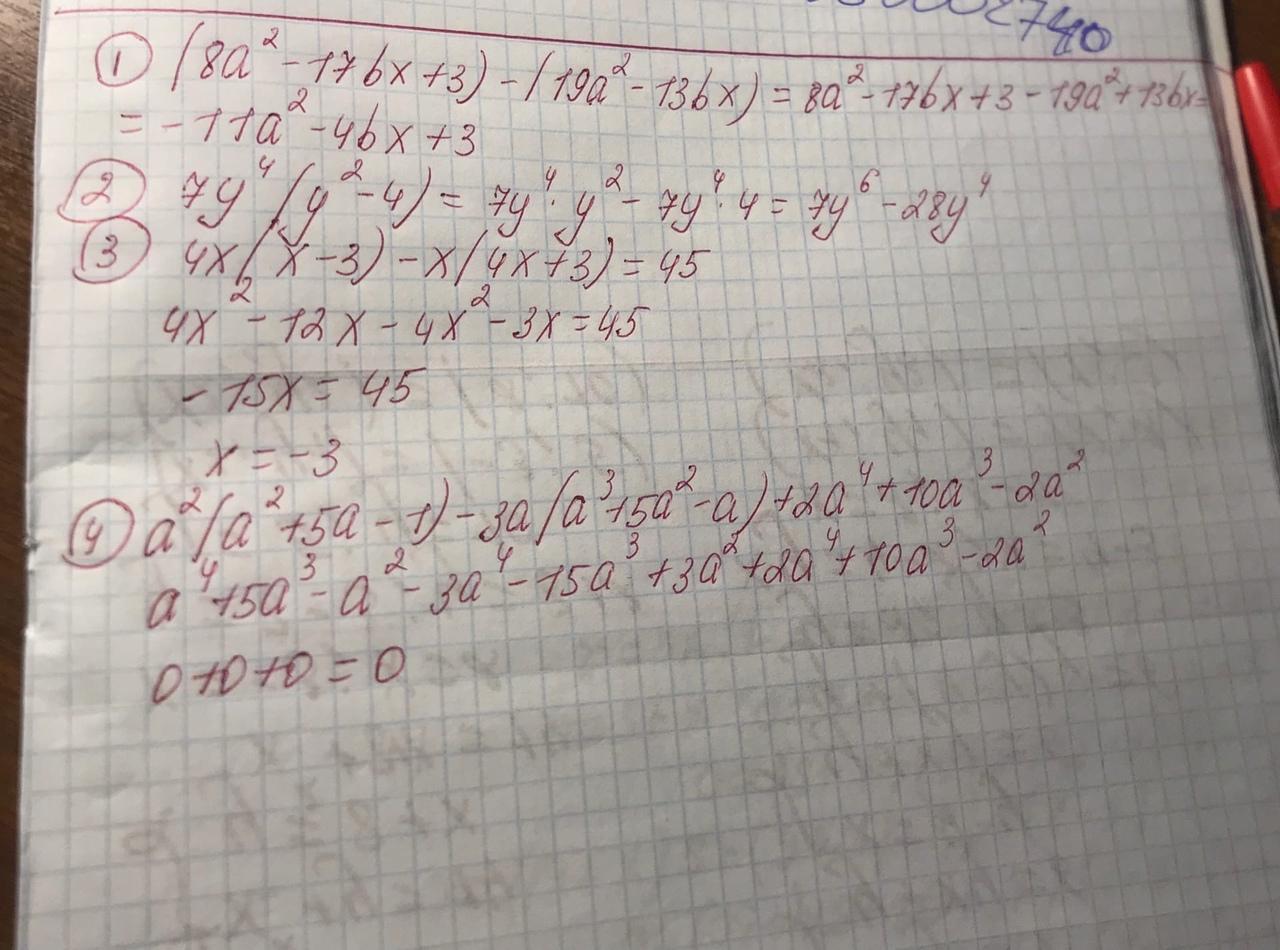 ① (8a² - 17bx + 3) - (19a² - 13bx) = 8a² - 17bx + 3 - 19a² + 13bx =
= -11a² - 4bx + 3
② 7y⁴(y² - 4) = 7y⁴ · y² - 7y⁴ · 4 = 7y⁶ - 28y⁴
③ 4x(x - 3) - x(4x + 3) = 45
4x² - 12x - 4x² - 3x = 45
- 15x = 45
x = -3
④ a²(a² + 5a - 1) - 3a(a³ + 5a² - a) + 2a⁴ + 10a³ - 2a²
a⁴ + 5a³ - a² - 3a⁴ - 15a³ + 3a² + 2a⁴ + 10a³ - 2a²
0 + 0 + 0 = 0